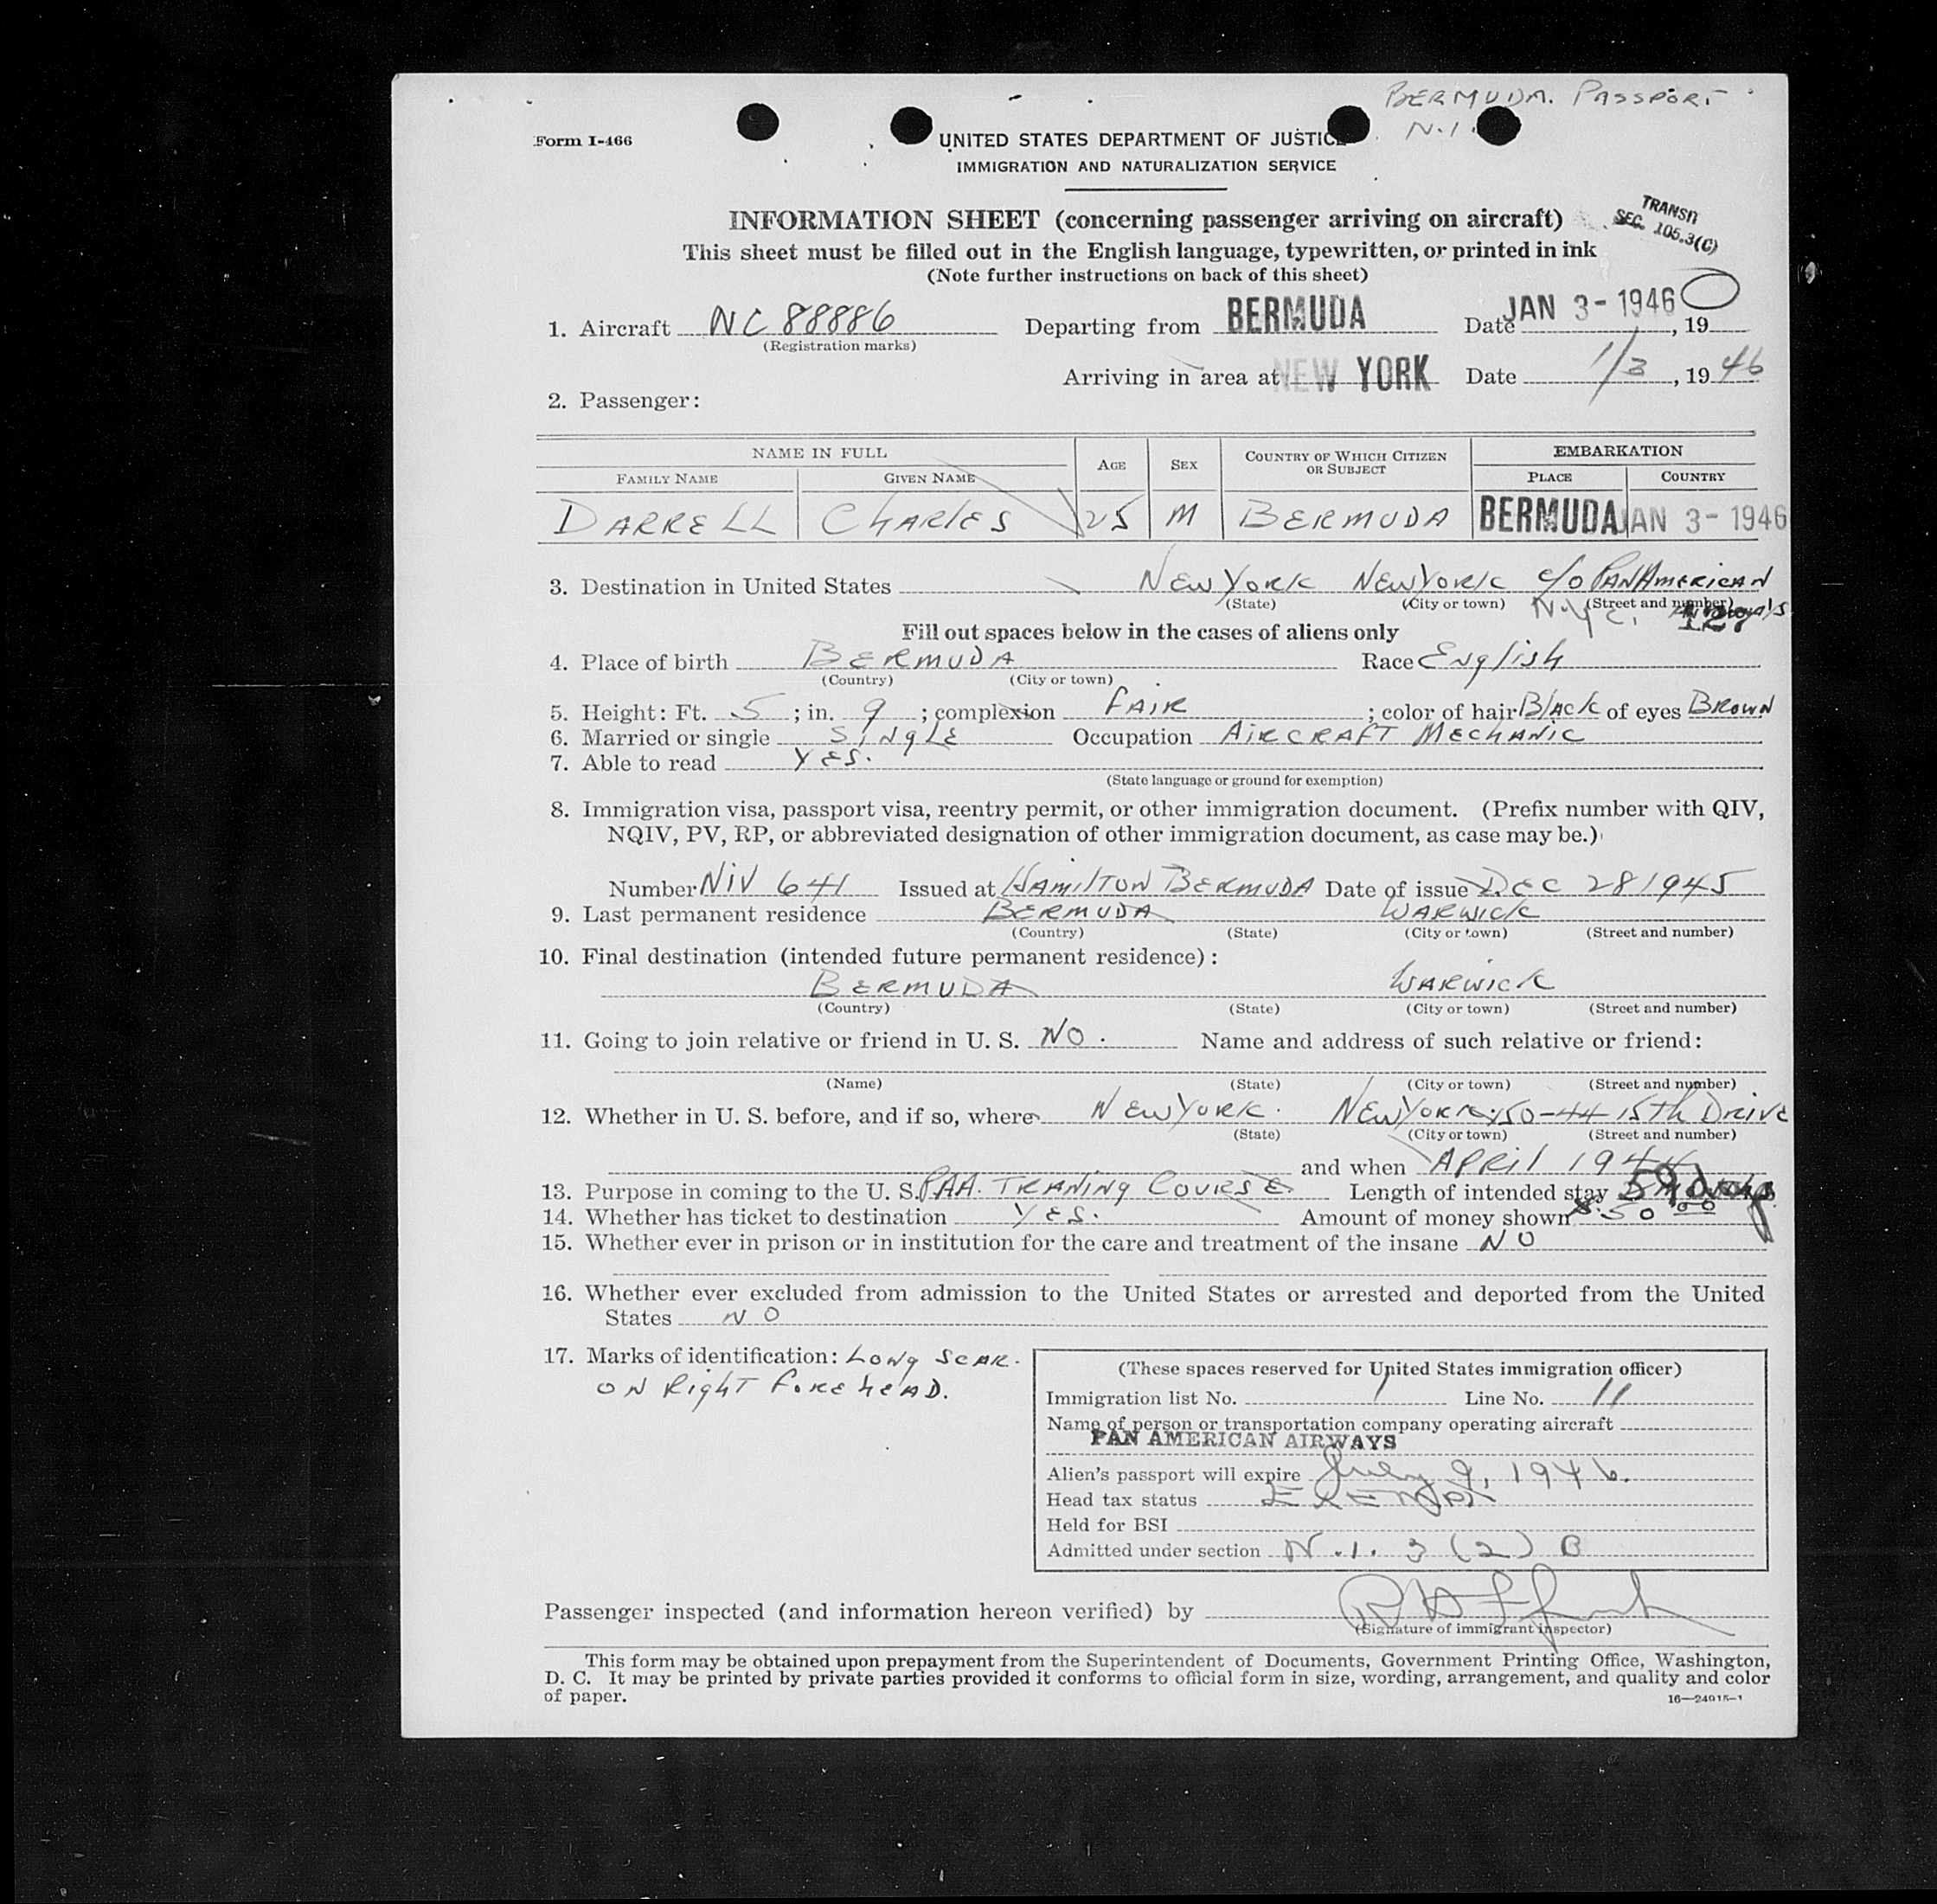 BERMUDA. PASSPORT
N.I.
Form I-466
UNITED STATES DEPARTMENT OF JUSTICE
IMMIGRATION AND NATURALIZATION SERVICE
TRANSIT
SEC. 105.3(C)
INFORMATION SHEET (concerning passenger arriving on aircraft)
This sheet must be filled out in the English language, typewritten, or printed in ink
(Note further instructions on back of this sheet)
1. Aircraft NC 88886 Departing from BERMUDA Date JAN 3- 1946, 19
(Registration marks)
Arriving in area at NEW YORK Date 1/3, 1946
2. Passenger:
NAME IN FULL AGE SEX COUNTRY OF WHICH CITIZEN OR SUBJECT EMBARKATION
FAMILY NAME GIVEN NAME PLACE COUNTRY
DARRELL CHARLES 25 M BERMUDA BERMUDA JAN 3- 1946
3. Destination in United States NEW YORK NEW YORK c/o PAN AMERICAN
(State) (City or town) (Street and number)
N.Y.C.
Fill out spaces below in the cases of aliens only
4. Place of birth BERMUDA Race English
(Country) (City or town)
5. Height: Ft. 5; in. 9; complexion FAIR; color of hair Black of eyes BROWN
6. Married or single SINGLE Occupation AIRCRAFT MECHANIC
7. Able to read YES.
(State language or ground for exemption)
8. Immigration visa, passport visa, reentry permit, or other immigration document. (Prefix number with QIV,
NQIV, PV, RP, or abbreviated designation of other immigration document, as case may be.)
Number NIV 641 Issued at HAMILTON BERMUDA Date of issue DEC 28 1945
9. Last permanent residence BERMUDA WARWICK
(Country) (State) (City or town) (Street and number)
10. Final destination (intended future permanent residence):
BERMUDA WARWICK
(Country) (State) (City or town) (Street and number)
11. Going to join relative or friend in U. S. NO. Name and address of such relative or friend:
(Name) (State) (City or town) (Street and number)
12. Whether in U. S. before, and if so, where NEW YORK. NEW YORK 150-44 15th DRIVE
(State) (City or town) (Street and number)
and when APRIL 1944
13. Purpose in coming to the U. S. PAA. TRANING COURSE. Length of intended stay
14. Whether has ticket to destination YES. Amount of money shown $50.00
15. Whether ever in prison or in institution for the care and treatment of the insane NO
16. Whether ever excluded from admission to the United States or arrested and deported from the United
States NO
17. Marks of identification: LONG SCAR.
ON RIGHT FOREHEAD.
(These spaces reserved for United States immigration officer)
Immigration list No. 1 Line No. 11
Name of person or transportation company operating aircraft
PAN AMERICAN AIRWAYS
Alien's passport will expire July 9, 1946.
Head tax status EXEMPT
Held for BSI
Admitted under section N.I. 3 (2) B
Passenger inspected (and information hereon verified) by
(Signature of immigrant inspector)
This form may be obtained upon prepayment from the Superintendent of Documents, Government Printing Office, Washington,
D. C. It may be printed by private parties provided it conforms to official form in size, wording, arrangement, and quality and color
of paper.
16—24015-1